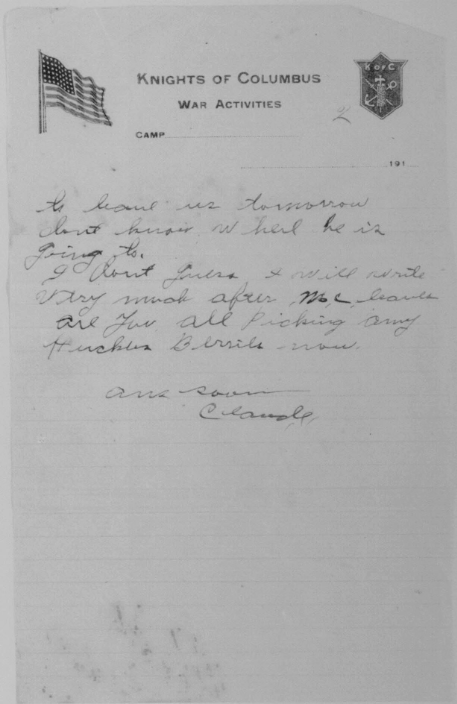 KNIGHTS OF COLUMBUS
K of C
WAR ACTIVITIES
2
CAMP
191
to leave us tomorrow
dont know wheil he is
going to.
I dont guess I will write
very much after Mc leaves
are you all Picking any
Huckles Berries now.
ans soon
Claude